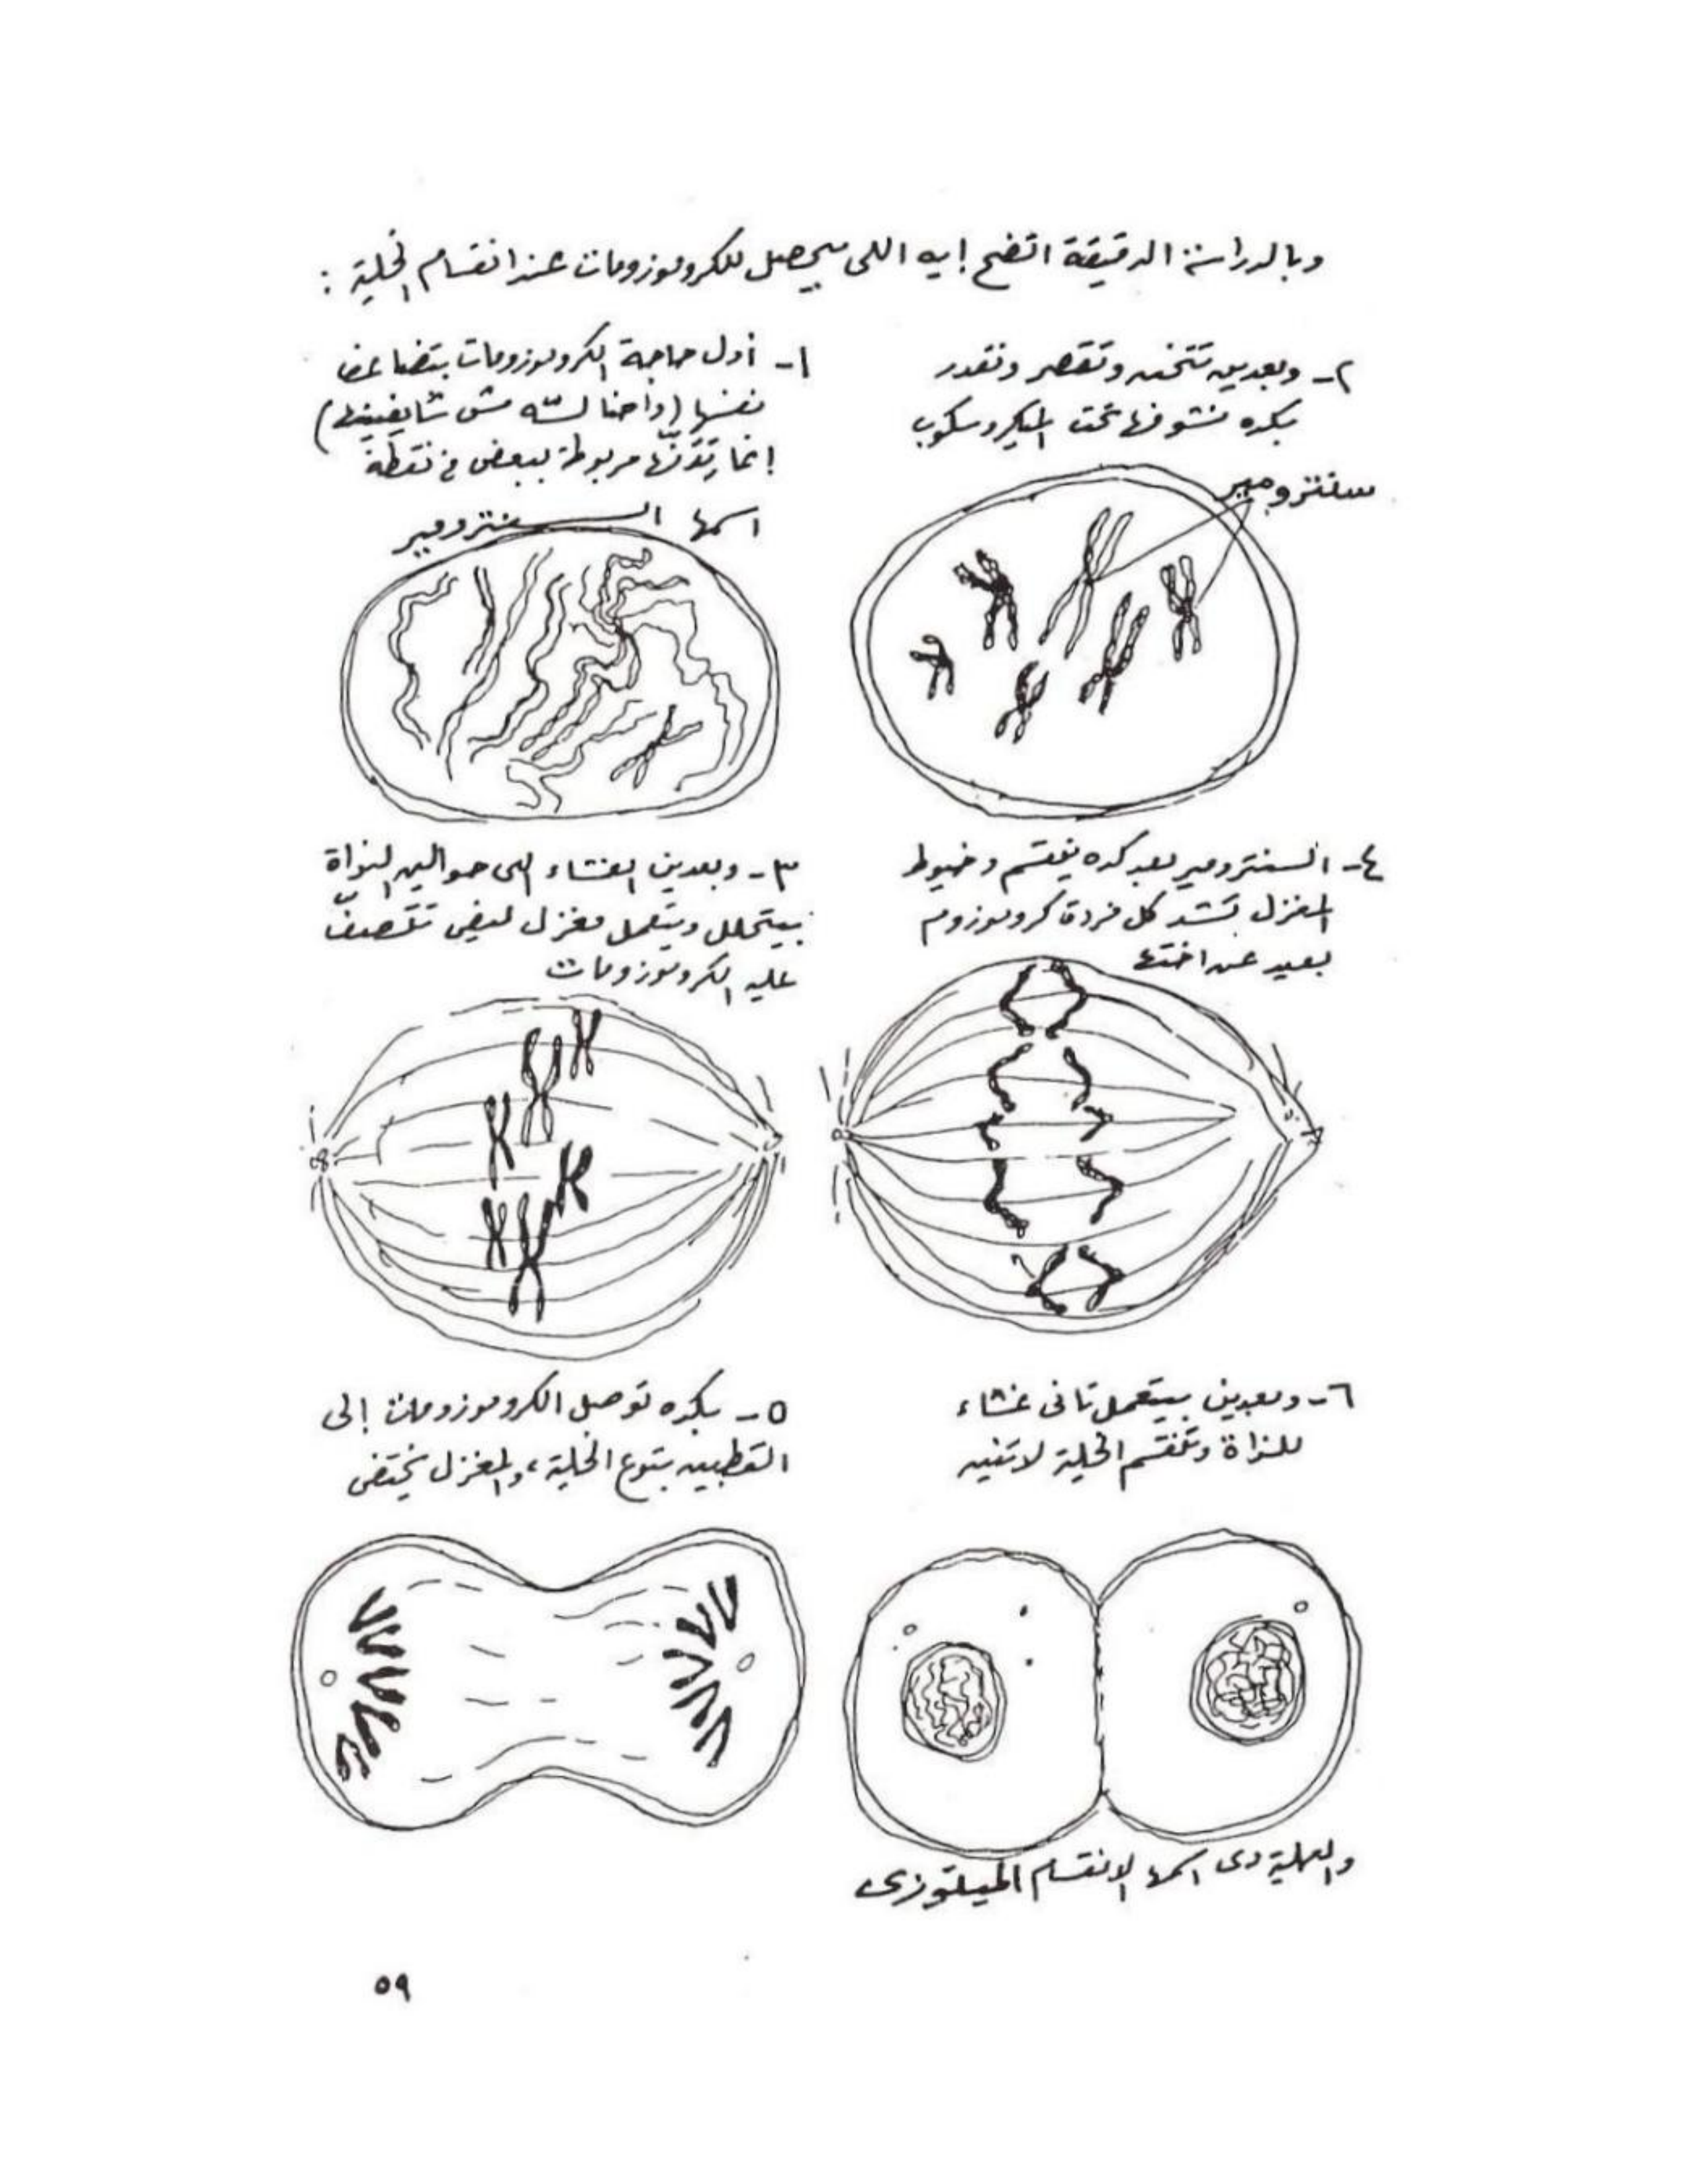 وبالدراسة الدقيقة اتضح إيه اللى بيحصل للكروموزومات عند انقسام الخلية :
١- أول حاجة الكروموزومات بتضاعف
نفسها (واحنا لسّه مش شايفينها)
إنما بتدنّها مربوطة ببعض في نقطة
اسمها السنترومير
٢- وبعدين تتخن وتقصر ونقدر
بكده نشوفها تحت الميكروسكوب
سنترومير
٣- وبعدين الغشاء اللى حوالين النواة
بيتحلل ويتعمل مغزل لبفى تتصفّ
عليه الكروموزومات
٤- السنترومير بعد كده ينقسم وخيوط
المغزل بتشد كل فردة كروموزوم
بعيد عن اختها
٥- بكده توصل الكروموزومات إلى
القطبين بتوع الخلية، والمغزل يختفى
٦- وبعدين بيتعمل تانى غشاء
للنواة وتنقسم الخلية لاتنين
والعملية دى اسمها الانقسام الميتوزى
٥٩